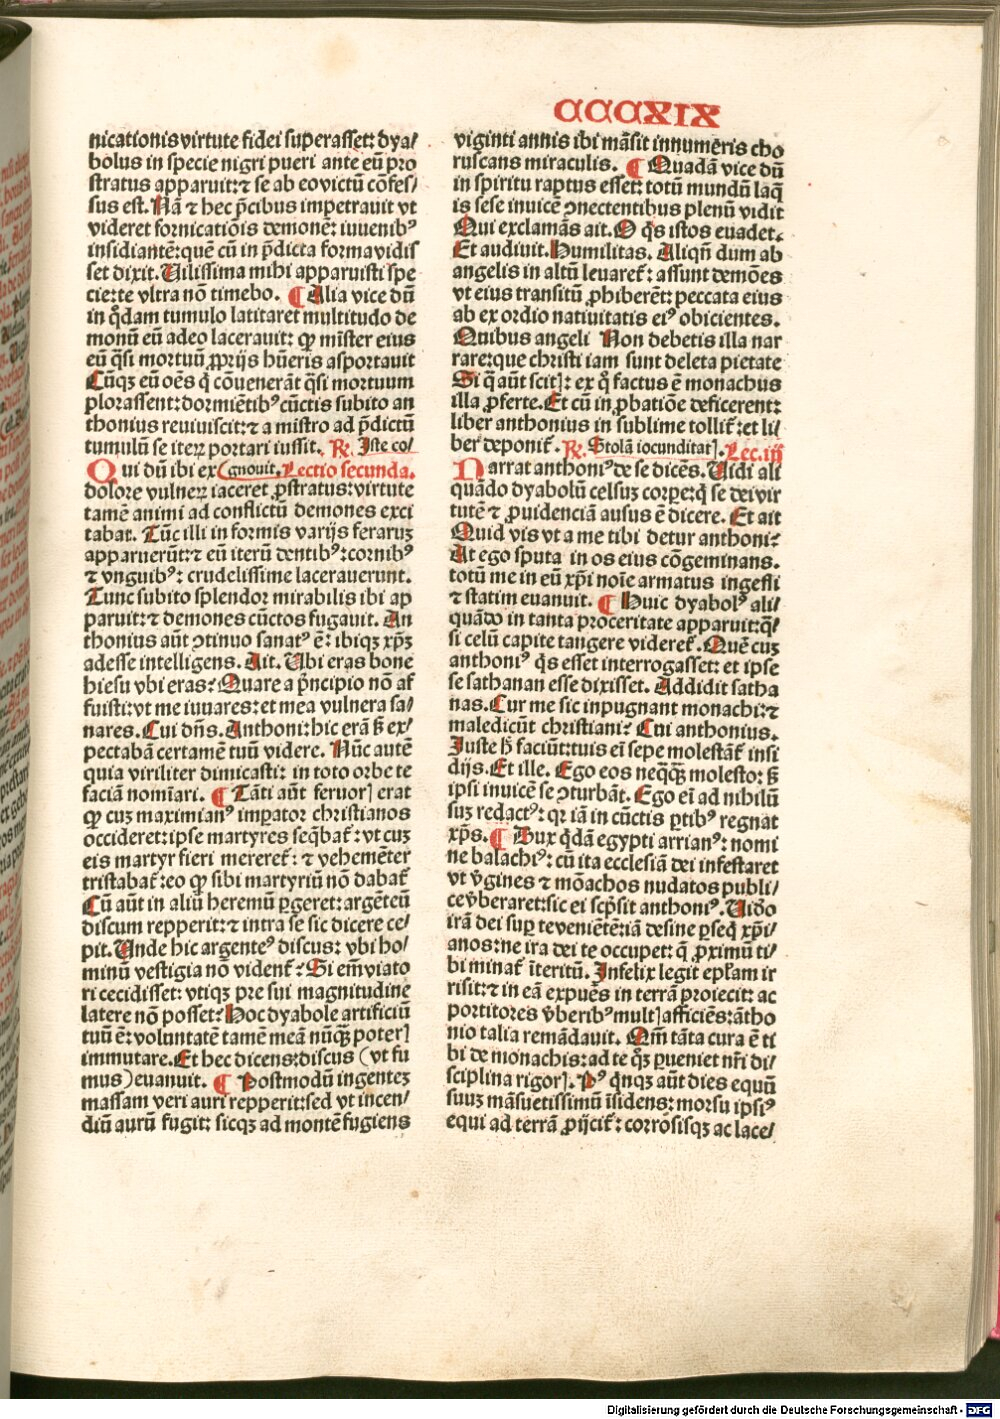 CCCXIX
nicationis virtute fidei superasset: dya/
bolus in specie nigri pueri ante eū pro
stratus apparuit: ⁊ se ab eo victū cōfes/
sus est. Nā ⁊ hec p̄cibus impetrauit vt
videret fornicatiōis demonē: iuuenibꝰ
insidiantē: quē cū in p̄dicta forma vidis
set dixit. Uilissima mihi apparuisti spe
cie: te vltra nō timebo. ¶ Alia vice dū
in q̄dam tumulo latitaret multitudo de
monū eū adeo lacerauit: ꝙ mīster eius
eū q̄si mortuū ꝓprijs hūeris asportauit
Cūqꝫ eū oēs q̄ cōuenerāt q̄si mortuum
plorassent: dormiētibꝰ cūctis subito an
thonius reuiuiscit: ⁊ a mīstro ad p̄dictū
tumulū se iterꝝ portari iussit. R. Iste co/
Qui dū ibi ex (gnouit. Lectio secunda.
dolore vulnerꝝ iaceret ꝓstratus: virtute
tamē animi ad conflictū demones exci
tabat. Tūc illi in formis varijs feraruꝫ
apparuerūt: ⁊ eū iterū dentibꝰ: cornibꝰ
⁊ vnguibꝰ: crudelissime lacerauerunt.
Tunc subito splendor mirabilis ibi ap
paruit: ⁊ demones cūctos fugauit. An
thonius aūt ꝯtinuo sanatꝰ ē: ibiqꝫ xp̄ꝫ
adesse intelligens. Ait. Ubi eras bone
hiesu vbi eras? Quare a p̄ncipio nō af
fuisti: vt me iuuares: et mea vulnera sa/
nares. Cui dn̄s. Anthoni: hic erā ß ex/
pectabā certamē tuū videre. Nūc autē
quia viriliter dimicasti: in toto orbe te
faciā nomīari. ¶ Tāti aūt feruorꝭ erat
ꝙ cuꝫ maximianꝰ imꝑator christianos
occideret: ipse martyres seq̄bat᷑: vt cuꝫ
eis martyr fieri mereret᷑: ⁊ vehemēter
tristabat᷑: eo ꝙ sibi martyriū nō dabat᷑
Cū aūt in aliū heremū ꝑgeret: argēteū
discum repperit: ⁊ intra se sic dicere ce/
pit. Unde hic argenteꝰ discus: vbi ho/
minū vestigia nō vident᷑? Si em̄ viato
ri cecidisset: vtiqꝫ pre sui magnitudine
latere nō posset? Hoc dyabole artificiū
tuū ē: voluntatē tamē meā nūq̄ꝫ poterꝭ
immutare. Et hec dicens: discus (vt fu
mus) euanuit. ¶ Postmodū ingenteꝫ
massam veri auri repperit: sed vt incen/
diū aurū fugit: sicqꝫ ad montē fugiens
viginti annis ibi māsit innumeris cho
ruscans miraculis. ¶ Quadā vice dū
in spiritu raptus esset: totū mundū laq̄
is sese inuicē ꝯnectentibus plenū vidit
Qui exclamās ait. O q̄s istos euadet.
Et audiuit. Humilitas. Aliqn̄ dum ab
angelis in altū leuaret᷑: assunt demōes
vt eius transitū ꝓhiberēt: peccata eius
ab exordio natiuitatis eiꝰ obicientes.
Quibus angeli Non debetis illa nar
rare: que christi iam sunt deleta pietate
Si q̄ aūt scitꝭ: ex q̄ factus ē monachus
illa ꝓferte. Et cū in ꝓbatiōe deficerent:
liber anthonius in sublime tollit᷑: et li/
ber deponit᷑. R. Stolā iocunditatꝭ. Lec. iij
Narrat anthoniꝰ de se dicēs. Uidi ali
quādo dyabolū celsuꝫ corpe: q̄ se dei vir
tutē ⁊ ꝓuidenciā ausus ē dicere. Et ait
Quid vis vt a me tibi detur anthoni?
At ego sputa in os eius cōgeminans.
totū me in eū xp̄i noīe armatus ingessi
⁊ statim euanuit. ¶ Huic dyabolꝰ ali/
quādo in tanta proceritate apparuit: q̄/
si celū capite tangere videret᷑. Quē cuꝫ
anthoniꝰ q̄s esset interrogasset: et ipse
se sathanan esse dixisset. Addidit satha
nas. Cur me sic inpugnant monachi: ⁊
maledicūt christiani? Cui anthonius.
Juste h̄ faciūt: tuis ei sepe molestāt᷑ insi
dijs. Et ille. Ego eos neq̄q̄ꝫ molesto: ß
ipsi inuicē se ꝯturbāt. Ego ei ad nihilū
suꝫ redactꝰ: qꝛ iā in cūctis ꝑtibꝰ regnat
xp̄s. ¶ Dux q̄dā egypti arrianꝰ: nomi
ne balachiꝰ: cū ita ecclesiā dei infestaret
vt v̄gines ⁊ mōachos nudatos publi/
ce v̄beraret: sic ei scp̄sit anthoniꝰ. Uideo
irā dei suꝑ te veniētē: iā desine ꝑseq̄ xp̄i/
anos: ne ira dei te occupet: q̄ ꝓximū ti/
bi minat᷑ īteritū. Infelix legit epl̄am ir
risit: ⁊ in eā expuēs in terrā proiecit: ac
portitores v̄beribꝰ multꝭ afficiēs: ātho
nio talia remādauit. Qm̄ tāta cura ē ti
bi de monachis: ad te q̄ꝫ ꝑueniet nr̄i di/
sciplina rigorꝭ. Pꝰ q̄nqꝫ aūt dies equū
suuꝫ māsuetissimū īsidens: morsu ipsiꝰ
equi ad terrā ꝓijcit᷑: corrōsisqꝫ ac lace/
Digitalisierung gefördert durch die Deutsche Forschungsgemeinschaft - DFG